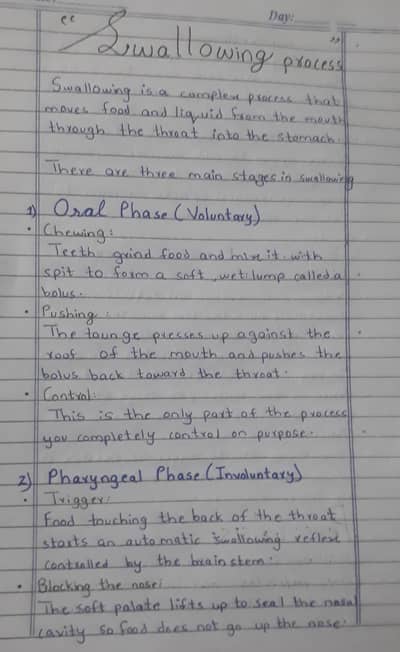 Day:
" Swallowing process "
Swallowing is a complex process that
moves food and liquid from the mouth
through the throat into the stomach.
There are three main stages in swallowing
1) Oral Phase (Voluntary)
• Chewing:
Teeth grind food and mix it with
spit to form a soft, wet lump called a
bolus.
• Pushing:
The tounge presses up against the
roof of the mouth and pushes the
bolus back toward the throat.
• Control:
This is the only part of the process
you completely control on purpose.
2) Pharyngeal Phase (Involuntary)
• Trigger:
Food touching the back of the throat
starts an automatic swallowing reflex
controlled by the brain stem.
• Blocking the nose:
The soft palate lifts up to seal the nasal
cavity so food does not go up the nose.